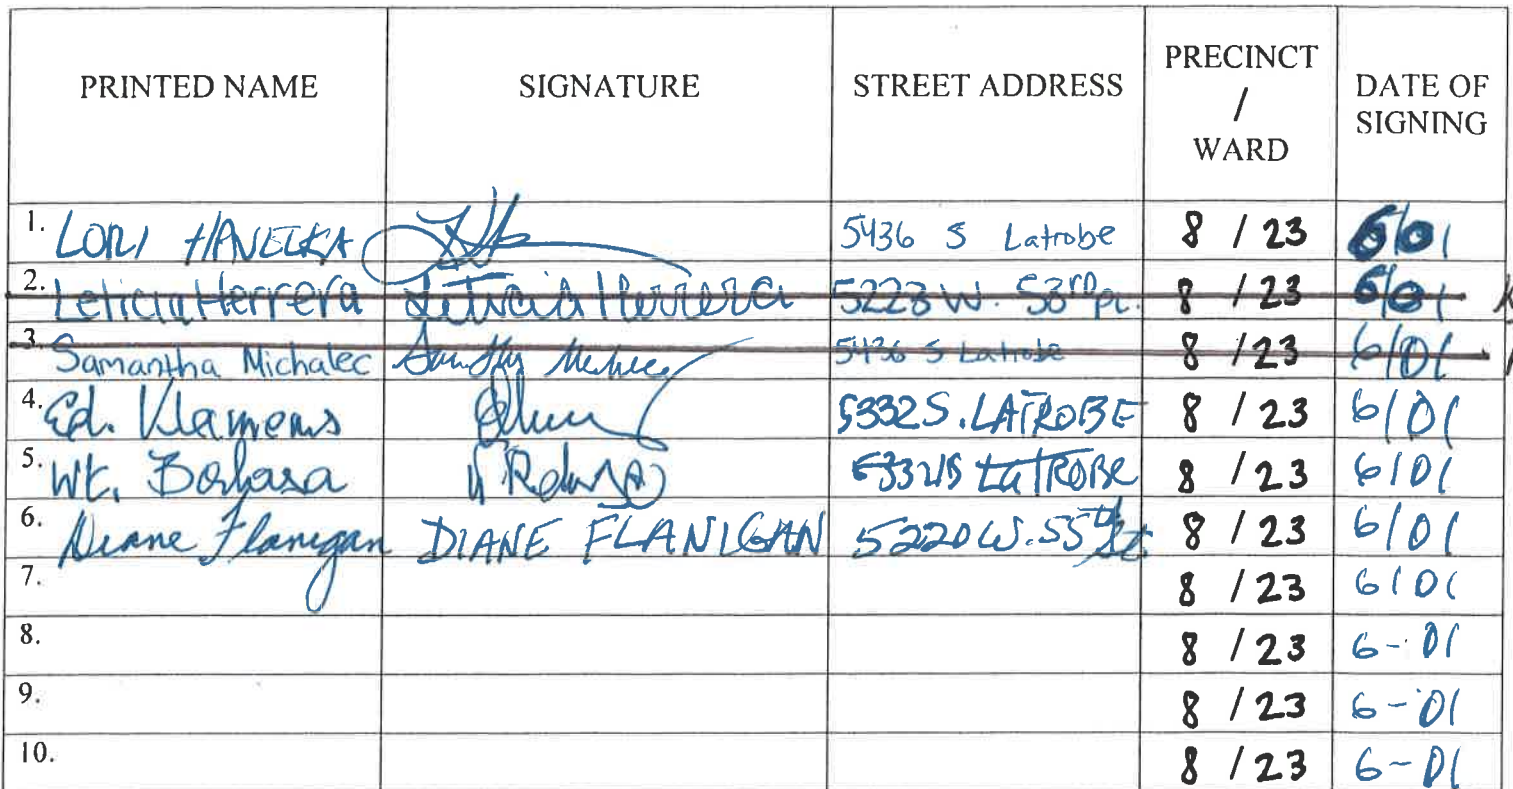 PRINTED NAME SIGNATURE STREET ADDRESS PRECINCT / WARD DATE OF SIGNING
1. LORI HAVELKA 5436 S Latrobe 8 / 23 6/01
2. Leticia Herrera Leticia Herrera 5223 W. 53rd pl. 8 / 23 6/01
3. Samantha Michalec 5436 S Latrobe 8 / 23 6/01
4. Ed. Klamens 5332 S. LATROBE 8 / 23 6/01
5. Wt. 5332 S LATROBE 8 / 23 6/01
6. Diane Flanigan DIANE FLANIGAN 5220 W. 55th St. 8 / 23 6/01
7. 8 / 23 6/01
8. 8 / 23 6-01
9. 8 / 23 6-01
10. 8 / 23 6-01